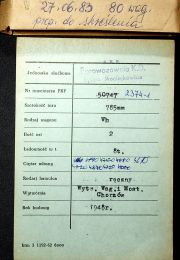 27.06.83 80 wag.
prop. do skreślenia
Jednostka służbowa
Parowozownia K.D.
Nr inwentarza PKP 50747 2374-1
Szerokość toru 785mm
Rodzaj wagonu Wh
Ilość osi 2
Ładowność w t. 8t.
Ciężar własny
Rodzaj hamulca ręczny
Wytwórnia Wytw. Wag.i Most.
Chorzów
Rok budowy 1948r.